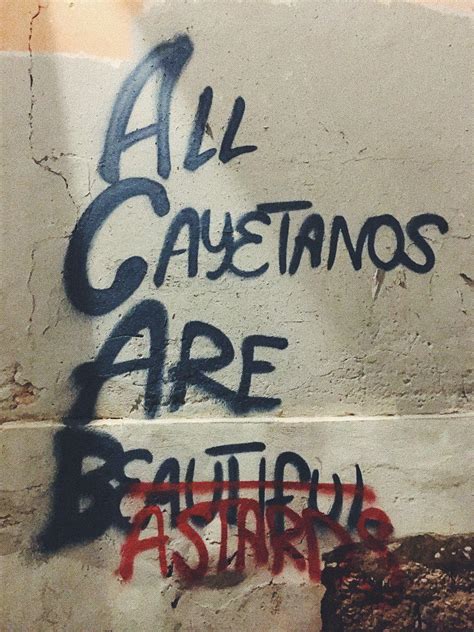 ALL
CAYETANOS
ARE
BEAUTIFUL
ASTARDS